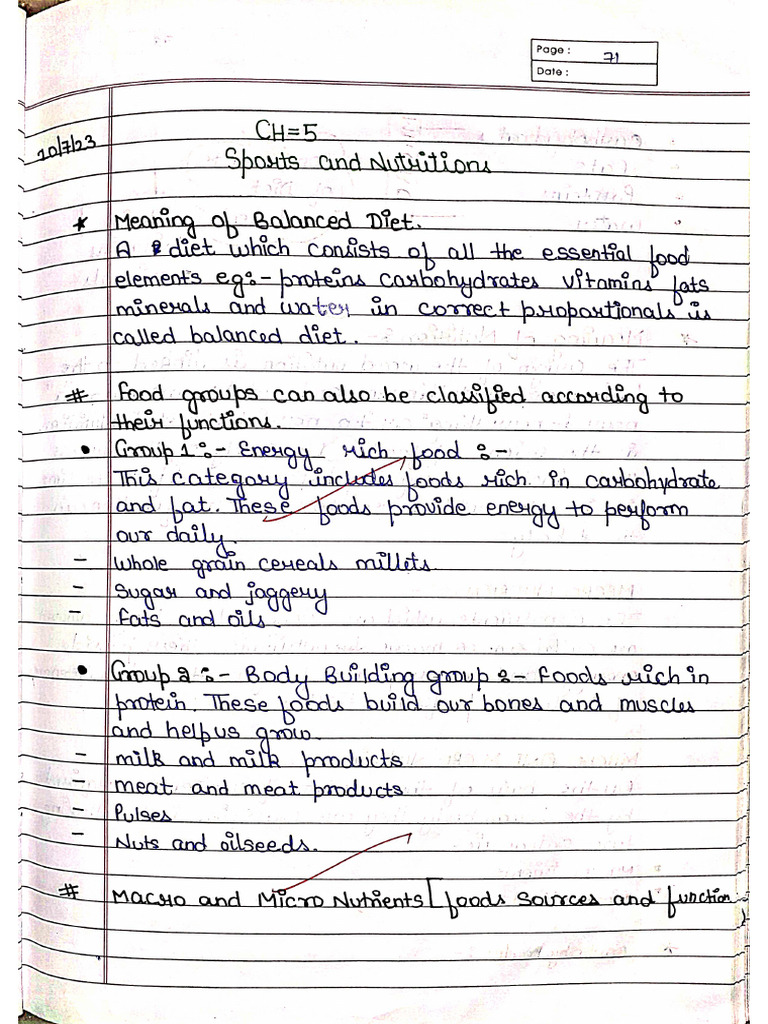 Page : 71
Date :
20/7/23
CH=5
Sports and Nutritions
* Meaning of Balanced Diet.
A diet which consists of all the essential food
elements eg:- proteins carbohydrates vitamins fats
minerals and water in correct proportionals is
called balanced diet.
# Food groups can also be classified according to
their functions.
• Group 1 :- Energy rich food :-
This category includes foods rich in carbohydrate
and fat. These foods provide energy to perform
our daily.
- Whole grain cereals millets.
- Sugar and jaggery
- Fats and oils.
• Group 2 :- Body Building group :- Foods rich in
protein. These foods build our bones and muscles
and help us grow.
- milk and milk products
- meat and meat products
- Pulses
- Nuts and oilseeds.
# Macro and Micro Nutrients [foods sources and function